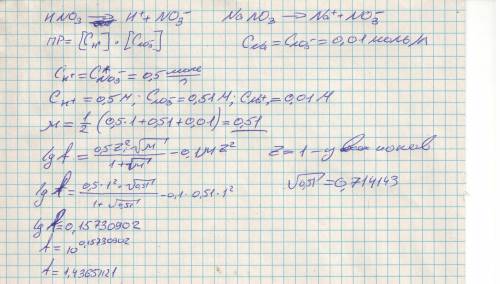 HNO₃ ⇌ H⁺ + NO₃⁻ NaNO₃ → Na⁺ + NO₃⁻
ПР = [C_H⁺] · [C_NO₃⁻] C_Na = C_NO₃⁻ = 0,01 моль/л
C_H⁺ = C_NO₃⁻ = 0,5 моль/л
C_H⁺ = 0,5 М; C_NO₃⁻ = 0,51 М; C_Na⁺ = 0,01 М
м = 1/2 (0,5·1 + 0,51 + 0,01) = 0,51
lg f = 0,5 z² · √м / 1 + √м − 0,1 м z² z = 1 –
lg f = 0,5 · 1² · √0,51 / 1 + √0,51 − 0,1 · 0,51 · 1² √0,51 = 0,714143
lg f = 0,15730902
f = 10^0,15730902
f = 1,4365121